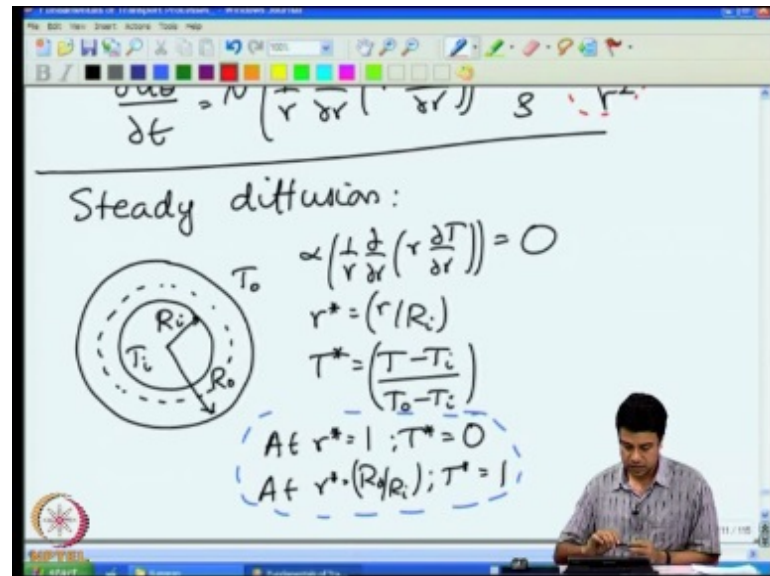 Fundamentals of Transport Processes - Windows Journal
File Edit View Insert Actions Tools Help
∂uθ/∂t = ν (1/r ∂/∂r (r ∂/∂r)) r²
Steady diffusion:
α(1/r ∂/∂r (r ∂T/∂r)) = 0
To
Ri
Ti
Ro
r* = (r/Ri)
T* = (T-Ti / To-Ti)
At r*=1 ; T*=0
At r*=(Ro/Ri) ; T*=1
NPTEL
start